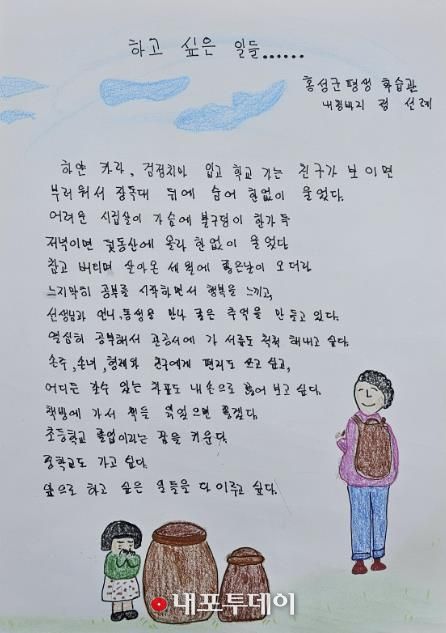 하고 싶은 일들......
홍성군 평생 학습관
내포반지 선례
하얀 카라, 검정치마 입고 학교 가는 친구가 보이면
부러워서 장독대 뒤에 숨어 한없이 울었다.
어려운 시집살이 가슴에 불구덩이 한가득
저녁이면 뒷동산에 올라 한없이 울었다
참고 버티며 살아온 세월에 좋은날이 오더라
느지막히 공부를 시작하면서 행복을 느끼고,
선생님과 언니,동생을 만나 좋은 추억을 만들고 있다.
열심히 공부해서 관공서에 가 서류도 척척 해내고 싶다.
손주,손녀,형제와 친구에게 편지도 쓰고 싶고,
어디든 갈수 있는 차표도 내손으로 끊어 보고 싶다.
책방에 가서 책을 읽었으면 좋겠다.
초등학교 졸업이라는 꿈을 키운다.
중학교도 가고 싶다.
앞으로 하고 싶은 일들을 다 이루고 싶다.
내포투데이